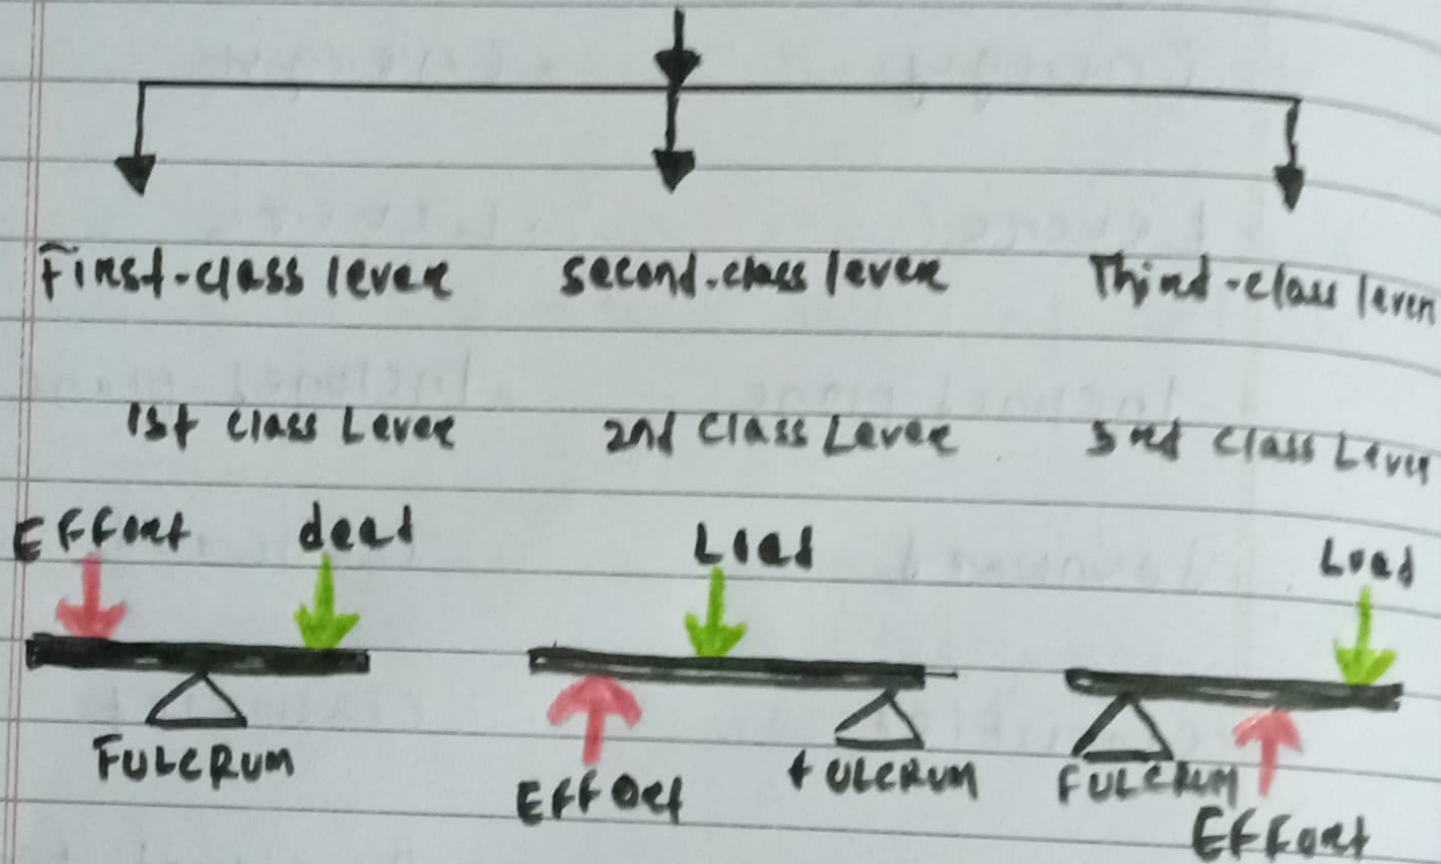 First-class lever second-class lever Third-class lever
1st class Lever 2nd Class Lever 3rd Class Lever
Effort dead Load Load
FULCRUM EFFort FULCRUM FULCRUM EFFort